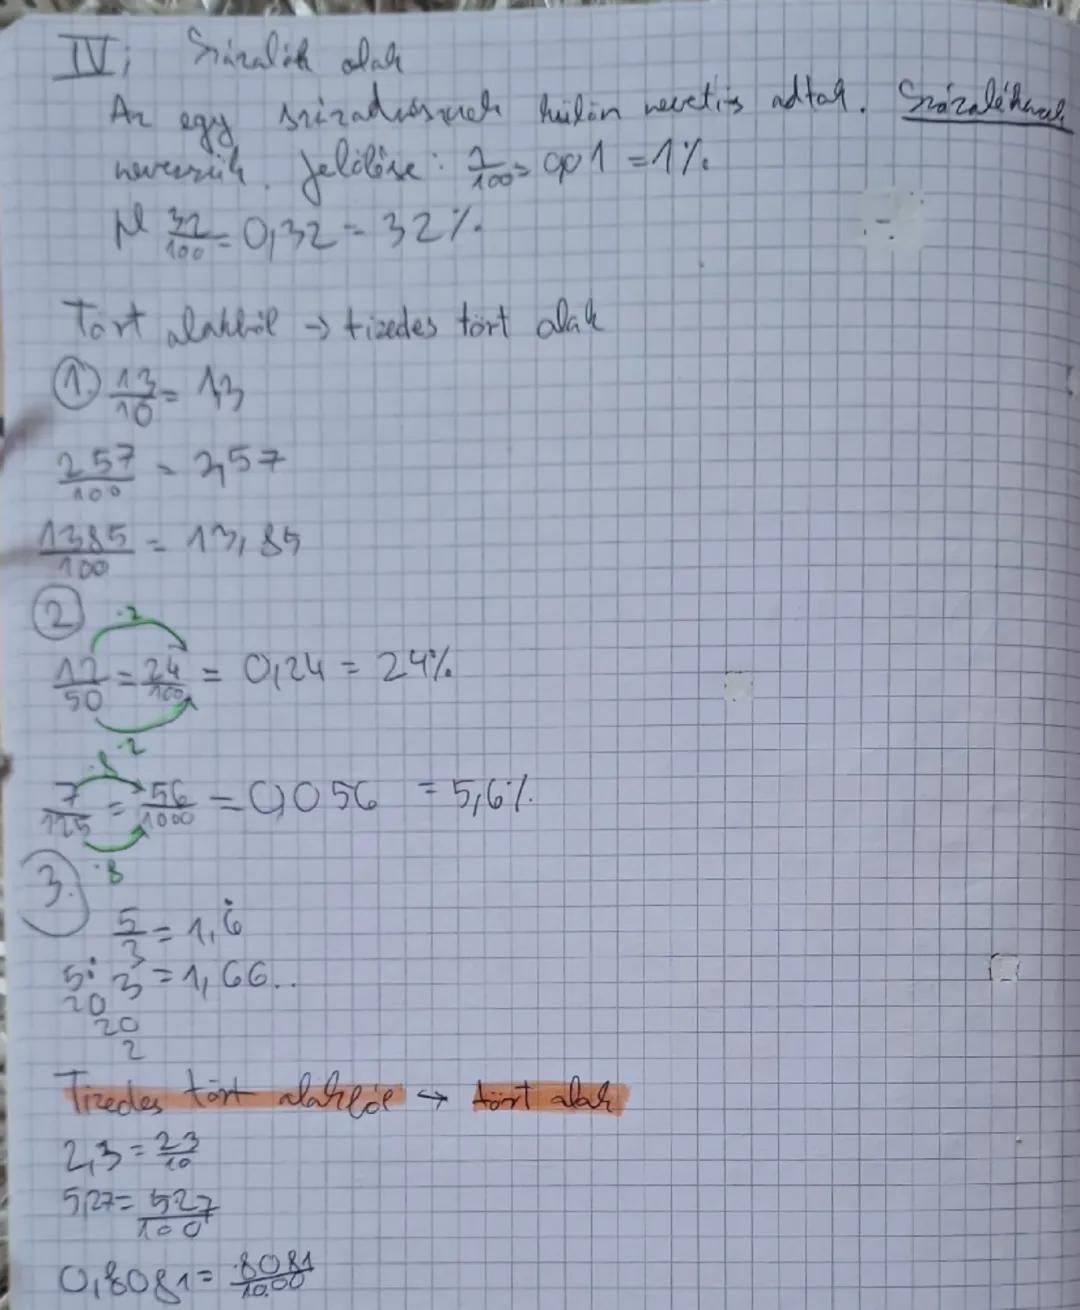 IV; Százalék alak
Az egy századrésznek külön nevet is adtak. Százaléknak
nevezzük. Jelölése: 1/100 = 0,01 = 1%.
Pl 32/100 = 0,32 = 32%.
Tört alakból → tizedes tört alak
1. 13/10 = 1,3
257/100 = 2,57
1385/100 = 13,85
2
·2
12/50 = 24/100 = 0,24 = 24%
·2
·8
7/125 = 56/1000 = 0,056 = 5,6%.
·8
3.
5/3 = 1,6̇
5:3 = 1,66..
20
20
2
Tizedes tört alakból → tört alak
2,3 = 23/10
5,27 = 527/100
0,8081 = 8081/10.00